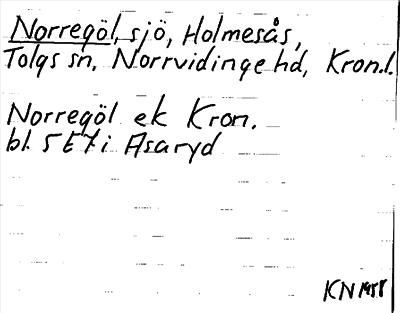 Norregöl, sjö, Holmesås,
Tolgs sn, Norrvidinge hd, Kron.l.
Norregöl ek Kron.
bl. 5 E 7 i Asaryd
KN